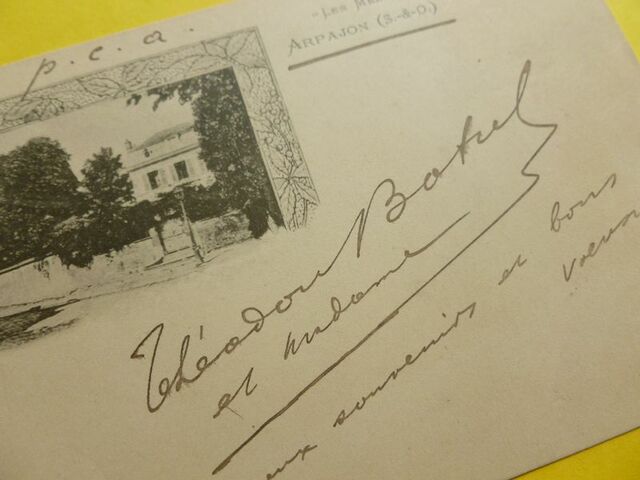 p. c. a.
"Les Me
Arpajon (S.-&-O.)
Théodore Botrel
et madame
souvenirs et bons
voeux